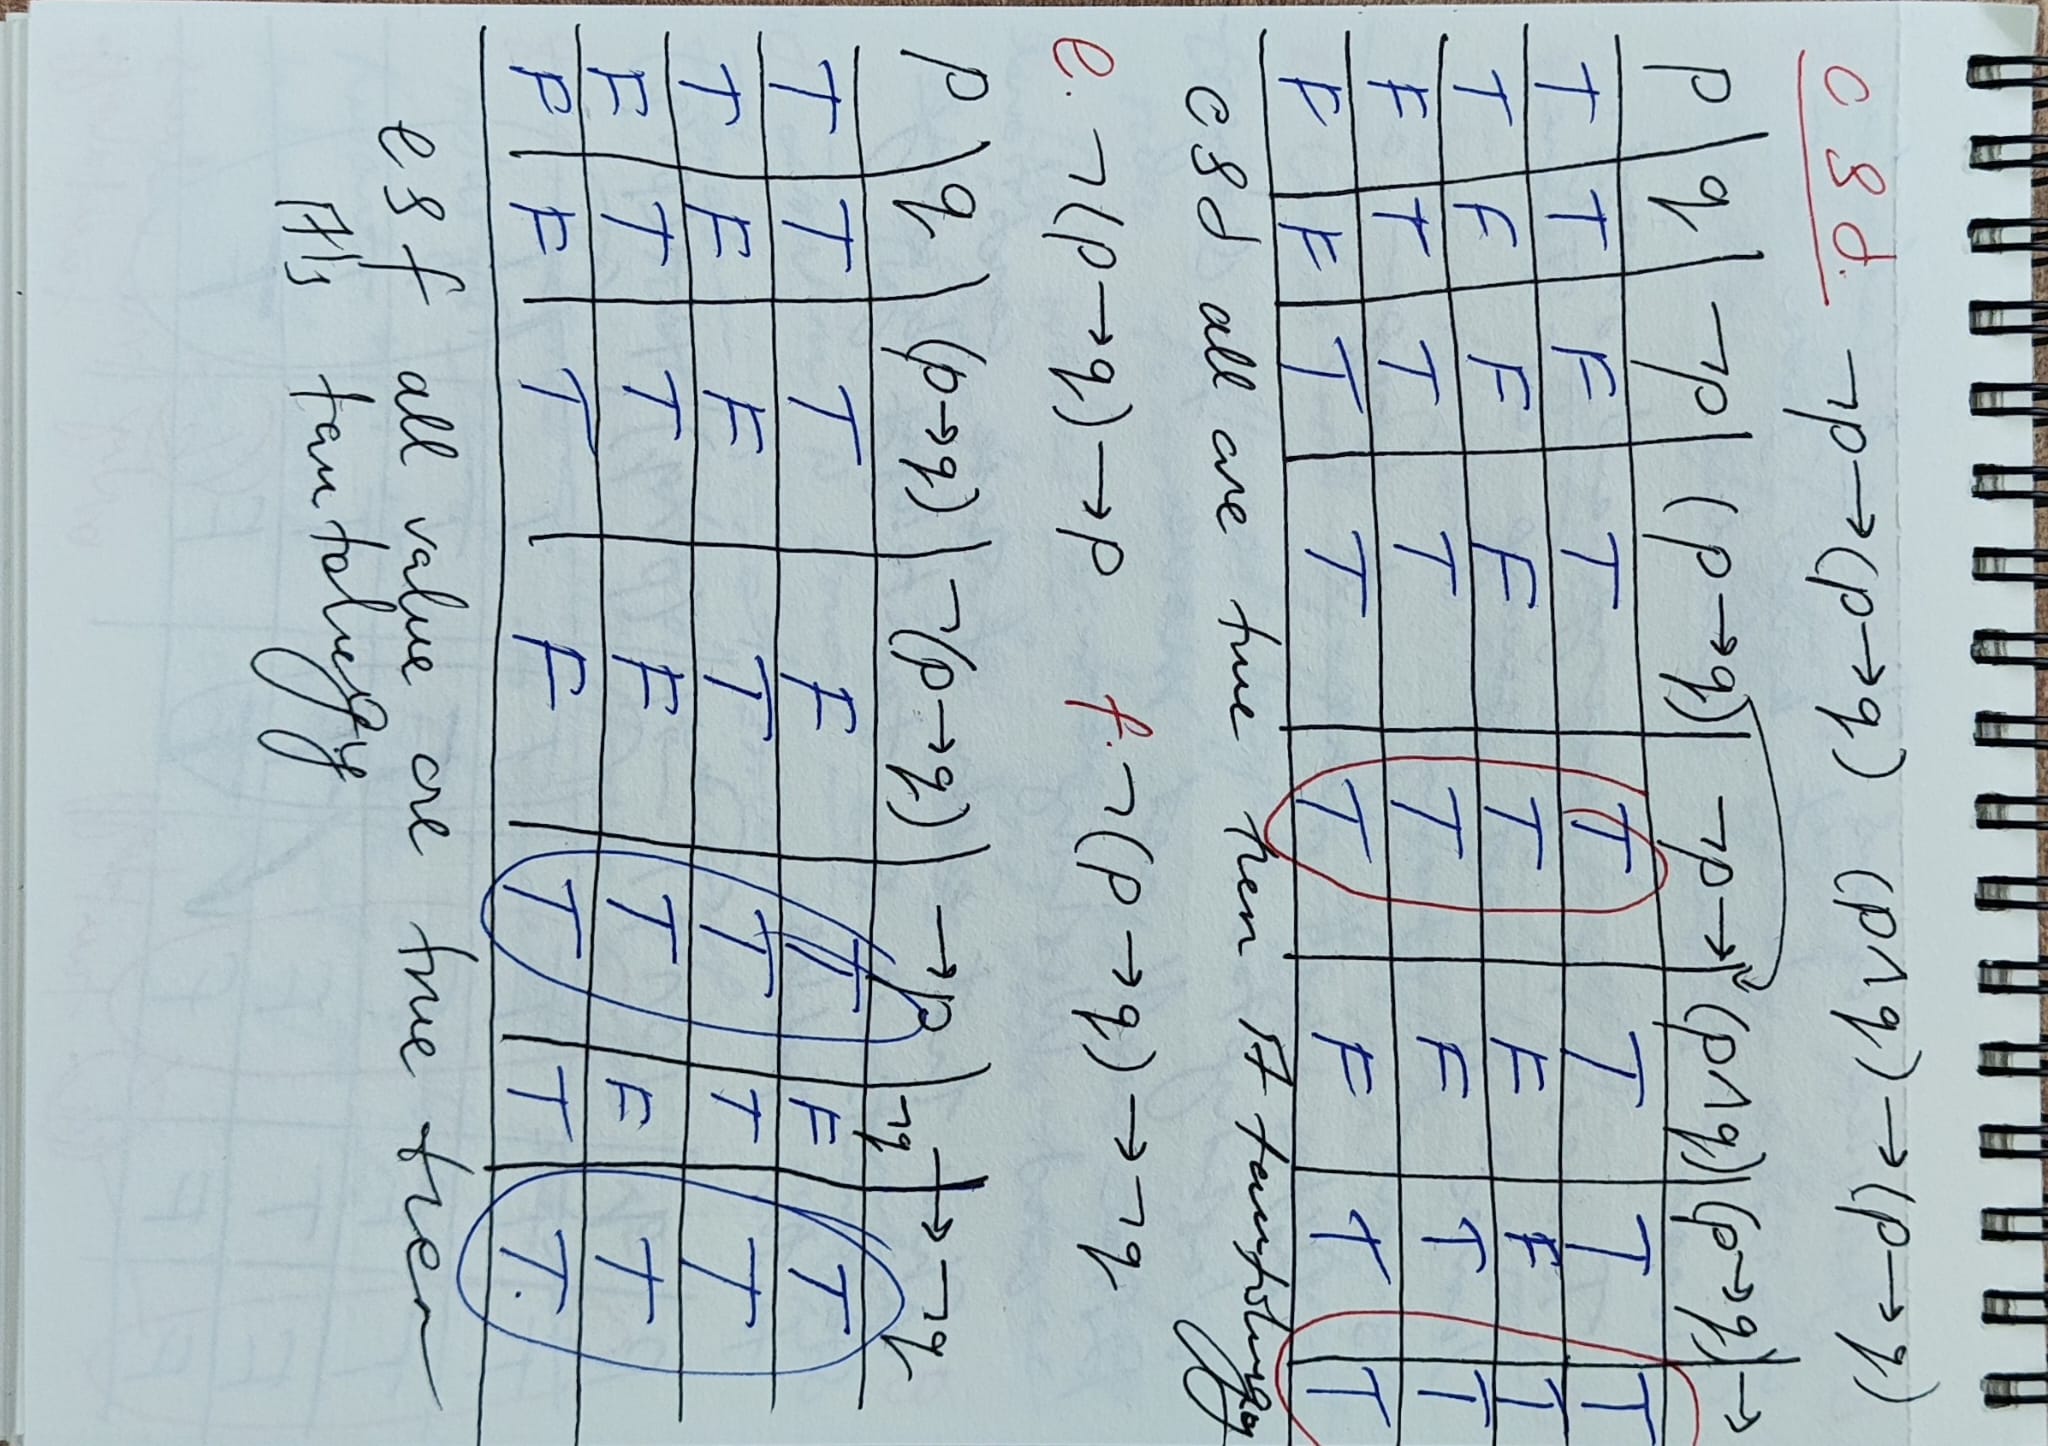 c & d. ¬p→(p→q) (p∧q)→(p→q)
p q ¬p (p→q) ¬p→ (p∧q) (p→q) →
T T F T T T T T
T F F F T F F T
F T T T T F T T
F F T T T F T T
c & d all are true then It tautology
e. ¬(p→q)→p f. ¬(p→q)→¬q
p q (p→q) ¬(p→q) →p ¬q →¬q
T T T F T F T
T F F T T T T
F T T F T F T
F F T F T T T
e & f all value are true then
It's tautology